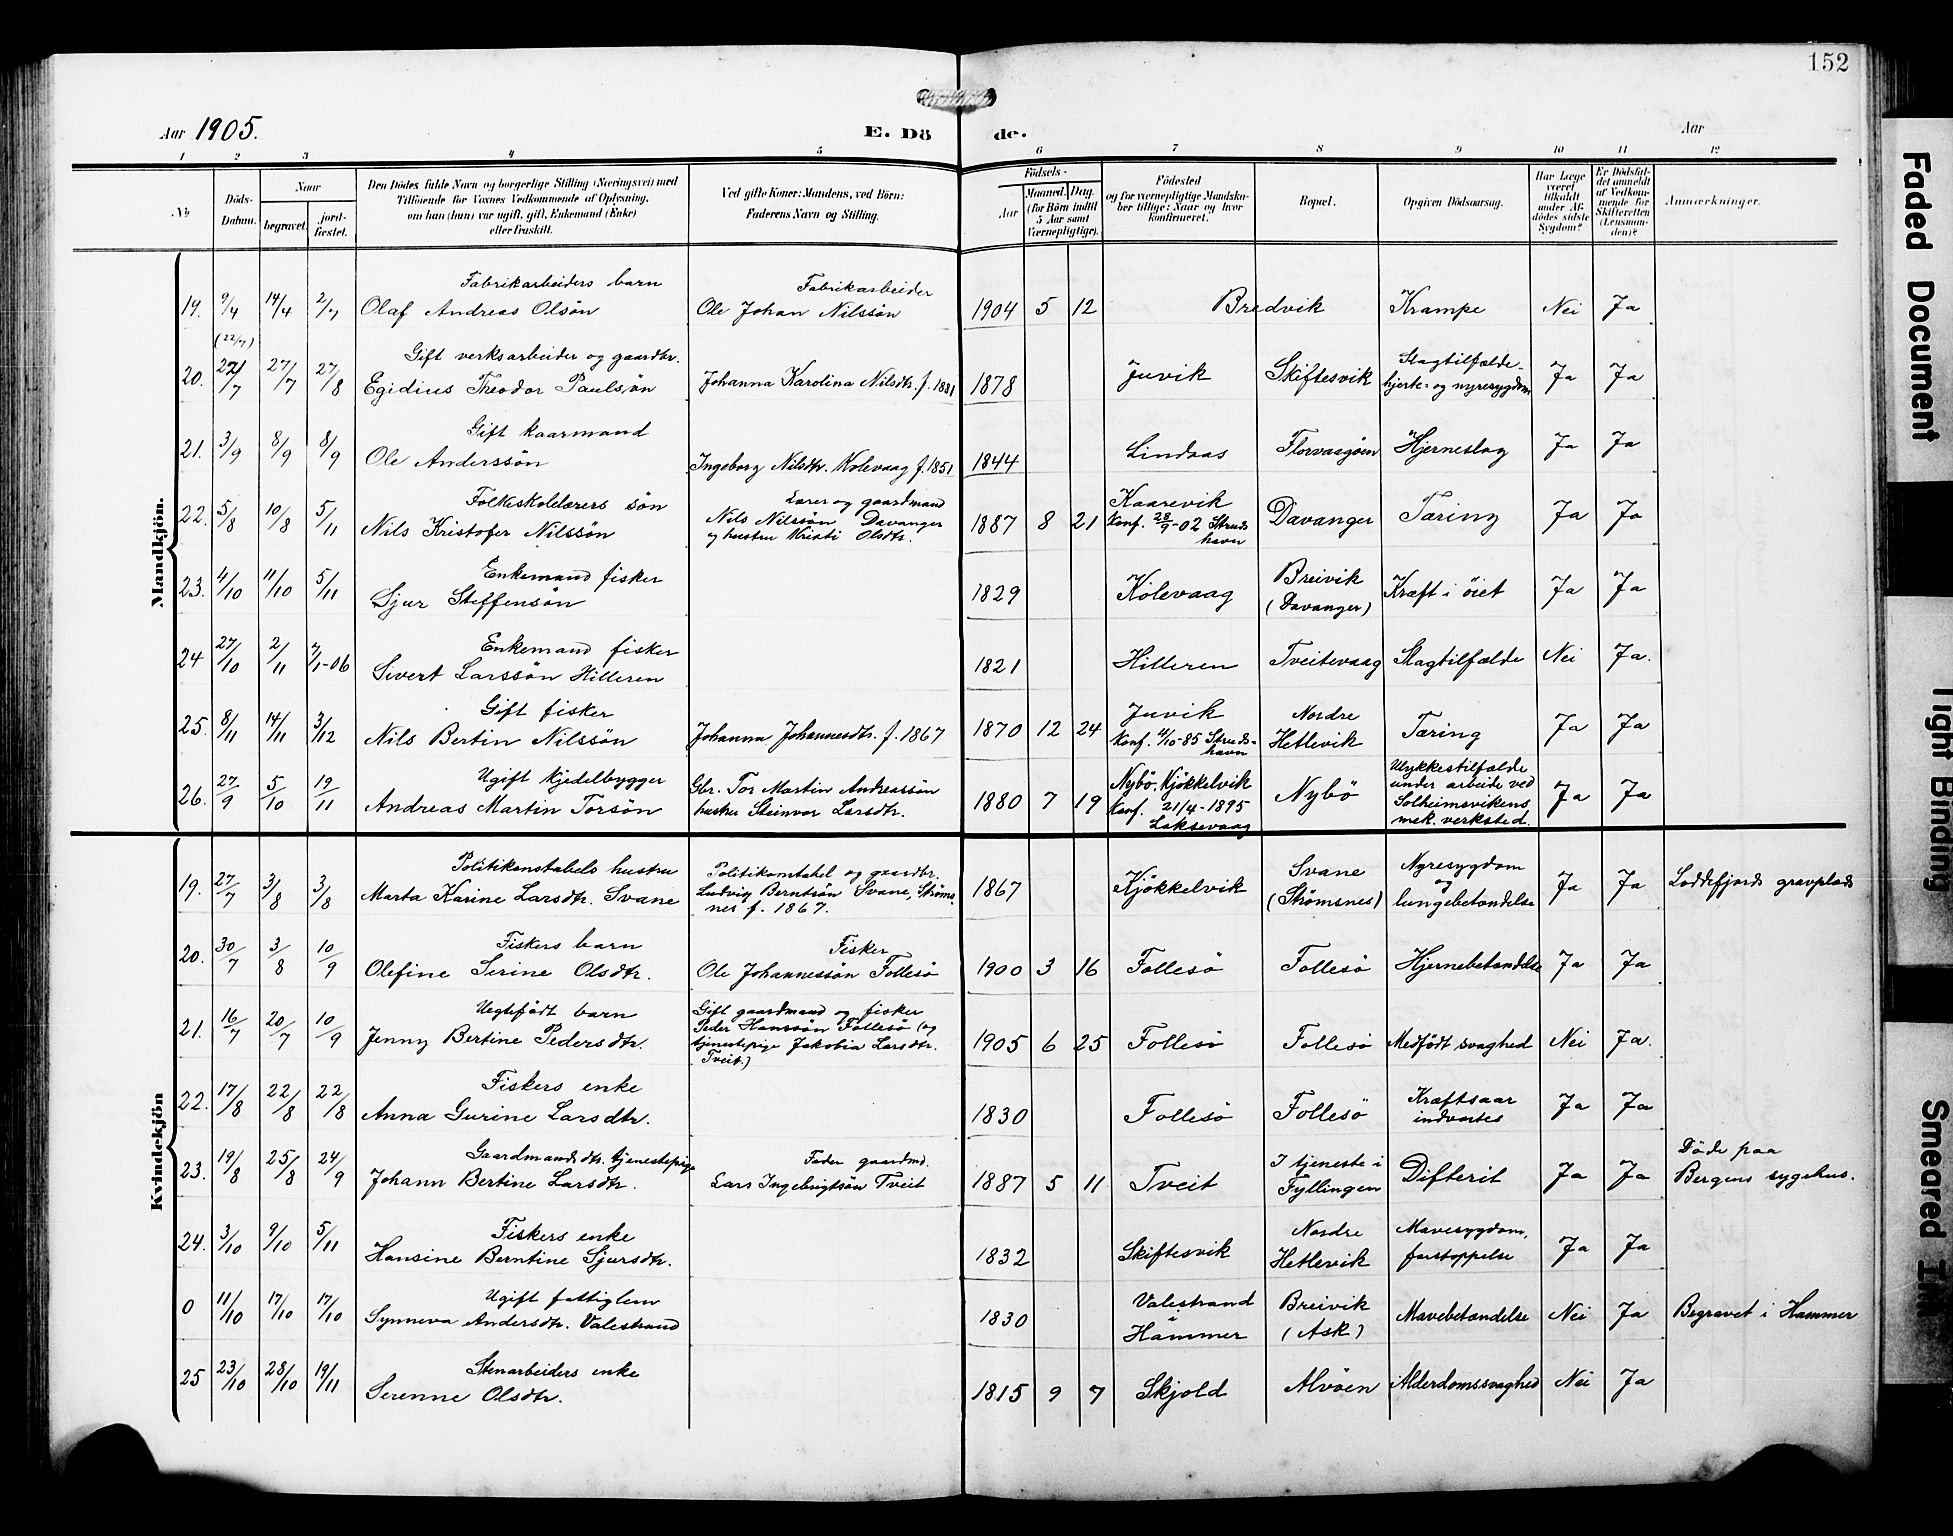 152
Aar 1905.
E. Döde.
Aar
1 2 3 4 5 6 7 8 9 10 11 12
No
Döds-Datum.
Naar
begravet.
jordfæstet.
Den Dödes fulde Navn og borgerlige Stilling (Næringsvei) med Tilföiende for Voxnes Vedkommende af Oplysning, om han (hun) var ugift, gift, Enkemand (Enke) eller fraskilt.
Ved gifte Koner: Mandens, ved Börn: Faderens Navn og Stilling.
Födsels-
Aar
Maaned. Dag.
(for Börn indtil 5 Aar samt Værnepligtige).
Födested og for værnepligtige Mandskaber tillige: Naar og hvor konfirmeret.
Bopæl.
Opgiven Dödsaarsag.
Har Læge været tilkaldt under Afdödes sidste Sygdom?
Er Dödsfaldet anmeldt af Vedkommende for Skifteretten (Lensmanden)?
Anmærkninger.
Mandkjön.
19. 9/4 14/4 2/7 Fabrikarbeiders barn
Olaf Andreas Olsön
Fabrikarbeider
Ole Johan Nilssön
1904 5 12 Bredvik Krampe Nei Ja
(22/7)
20. 22/7 27/7 27/8 Gift verksarbeider og gaardbr.
Egidius Theodor Paulsön
Johanna Karolina Nilsdtr. f. 1881
1878 Juvik Skiftesvik Slagtilfælde-
hjerte- og nyresygdom Ja Ja
21. 3/9 8/9 8/9 Gift kaarmand
Ole Anderssön
Ingeborg Nilsdtr. Kolevaag f. 1851
1844 Lindaas Florvaagöen Hjerneslag Ja Ja
22. 5/8 10/8 5/11 Folkeskolelærers sön
Nils Kristofer Nilssön
Lærer og gaardmand
Nils Nilssön Davanger
og hustru Kristi Olsdtr.
1887 8 21 Kaarevik
Konf. 28/9-02 Strudshavn
Davanger Tæring Ja Ja
23. 4/10 11/10 5/11 Enkemand fisker
Sjur Steffensön
1829 Kolevaag Breivik
(Davanger) Kræft i öiet Ja Ja
24 27/10 2/11 7/1-06 Enkemand fisker
Sivert Larssön Hilleren
1821 Hilleren Tveitevaag Slagtilfælde Nei Ja.
25. 8/11 14/11 3/12 Gift fisker
Nils Bertin Nilssön
Johanna Johannesdtr. f. 1867
1870 12 24 Juvik
Konf. 4/10-85 Strudshavn
Nordre
Hetlevik Tæring Ja Ja
26. 27/9 5/10 19/11 Ugift kjedelbygger
Andreas Martin Torsön
Gbr. Tor Martin Andreassön
hustru Steinvor Larsdtr.
1880 7 19 Nybö, Kjökkelvik
Konf. 21/4-1895
Laksevaag
Nybö Ulykkestilfælde
under arbeide ved
Solheimsvikens
mek. verksted. Ja Ja
Kvindekjön
19. 27/7 3/8 3/8 Politikonstabels hustru
Marta Karine Larsdtr. Svane
Politikonstabel og gaardbr.
Ludvig Berntsön Svane, Strömsnes f. 1867.
1867 Kjökkelvik Svane
(Strömsnes) Nyresygdom
og
lungebetændelse Ja Ja Loddefjords gravplads
20. 30/7 3/8 10/9 Fiskers barn
Olefine Serine Olsdtr.
Fisker
Ole Johannessön Follesö
1900 3 16 Follesö Follesö Hjernebetændelse Ja Ja
21. 16/7 20/7 10/9 Uegtefödt barn
Jenny Bertine Pedersdtr.
Gift gaardmand og fisker
Peder Hanssön Follesö (og
tjenestepige Jakobia Larsdtr.
Tveit)
1905 6 25 Follesö Follesö Medfödt svaghed Nei Ja.
22. 17/8 22/8 22/8 Fiskers enke
Anna Gurine Larsdtr.
1830 Follesö Follesö Kræftsaar
indvortes Ja Ja
23. 19/8 25/8 24/9 Gaardmandsdtr. tjenestepige
Johann Bertine Larsdtr.
Fader gaardmd.
Lars Ingebrigtsön Tveit
1887 5 11 Tveit I tjeneste i
Fyllingen Difterit Ja Ja Döde paa
Bergens sygehus.
24. 3/10 9/10 5/11 Fiskers enke
Hansine Berntine Sjursdtr.
1832 Skiftesvik Nordre
Hetlevik Mavesygdom,
forstoppelse Ja Ja
0 11/10 17/10 17/10 Ugift fattiglem
Synneva Andersdtr. Valestrand
1830 Valestrand
Hammer Breivik
(Ask) Mavebetændelse Nei Ja Begravet i Hammer
25 23/10 28/10 19/11 Stenarbeiders enke
Serenne Olsdtr.
1815 9 7 Skjold Alvöen Alderdomssvaghed Nei Ja
Faded Document
Tight Binding
Smeared Ink